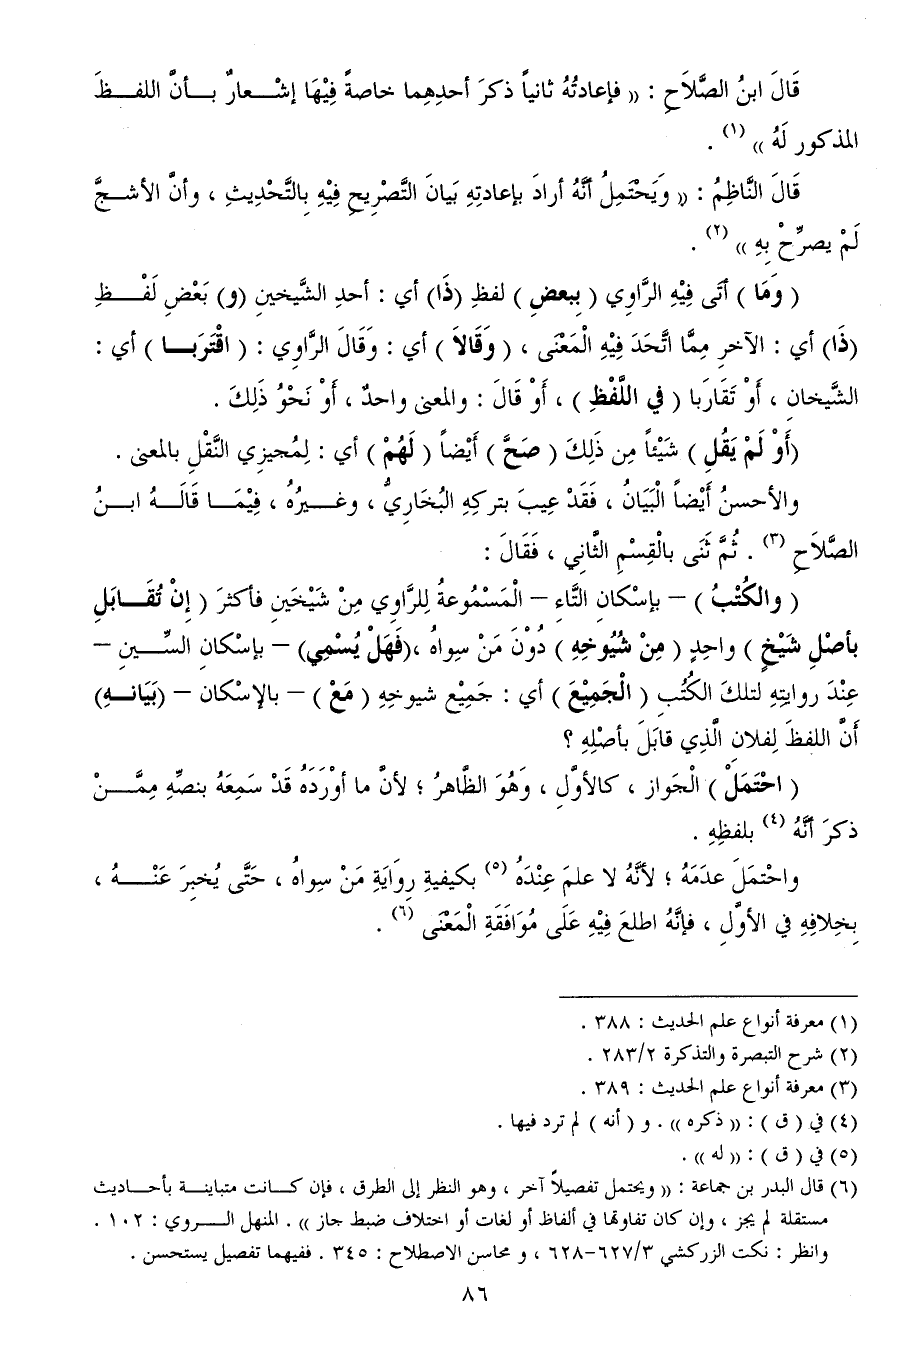 قَالَ ابنُ الصَّلاَحِ : (( فإعادتُهُ ثانياً ذكرَ أحدِهِما خاصةً فِيْهَا إشْعارٌ بأنَّ اللفظَ
المذكور لَهُ )) (١) .
قَالَ النَّاظِمُ : (( وَيَحْتَمِلُ أنَّهُ أرادَ بإعادتِهِ بَيانَ التَّصْرِيحِ فِيْهِ بالتَّحْدِيثِ ، وأنَّ الأشجَّ
لَمْ يصرِّحْ بِهِ )) (٢) .
( وَمَا ) أتَى فِيْهِ الرَّاوِي ( ببعضِ ) لفظِ (ذَا) أي : أحدِ الشَّيخينِ (و) بَعْضِ لَفْظِ
(ذَا) أي : الآخرِ مِمَّا اتَّحَدَ فِيْهِ الْمَعْنَى ، ( وَقَالاَ ) أي : وَقَالَ الرَّاوِي : ( اقْتَرَبَا ) أي :
الشَّيخانِ ، أَوْ تَقَارَبا ( فِي اللَّفْظِ ) ، أَوْ قَالَ : والمعنى واحدٌ ، أَوْ نَحْوُ ذَلِكَ .
(أَوْ لَمْ يَقُلِ ) شَيْئاً مِن ذَلِكَ ( صَحَّ ) أَيْضاً ( لَهُمْ ) أي : لِمُجيزي النَّقْلِ بالمعنى .
والأحسنُ أَيْضاً الْبَيَانُ ، فَقَدْ عِيبَ بتركِهِ البُخَارِيُّ ، وغَيرُهُ ، فِيْمَا قَالَهُ ابنُ
الصَّلاَحِ (٣) . ثُمَّ ثَنَى بالْقِسْمِ الثَّانِي ، فَقَالَ :
( والكُتْبُ ) – بإسْكانِ التَّاء – الْمَسْمُوعةُ لِلرَّاوِي مِنْ شَيْخَينِ فأكثرَ ( إنْ تُقَابَلِ
بأصْلِ شَيْخٍ ) واحِدٍ ( مِنْ شُيُوخِهِ ) دُوْنَ مَنْ سِواهُ ،(فَهَلْ يُسْمِي) – بإسْكانِ السِّينِ –
عِنْدَ روايتِهِ لتلكَ الكُتُبِ ( الْجَمِيْعَ ) أي : جَمِيْع شيوخِهِ ( مَعْ ) – بالإسْكان – (بَيَانهِ)
أَنَّ اللفظَ لِفلان الَّذِي قابَلَ بأصْلِهِ ؟
( احْتَمَلْ ) الْجَوازَ ، كالأوَّلِ ، وَهُوَ الظَّاهرُ ؛ لأنَّ ما أوْرَدَهُ قَدْ سَمِعَهُ بنصِّهِ مِمَّنْ
ذكرَ أنَّهُ (٤) بلفظِهِ .
واحْتملَ عدَمَهُ ؛ لأنَّهُ لا علمَ عِنْدَهُ (٥) بكيفيةِ رِوايَةِ مَنْ سِواهُ ، حَتَّى يُخبِرَ عَنْهُ ،
بِخِلافِهِ فِي الأوَّلِ ، فإنَّهُ اطلعَ فِيْهِ عَلَى مُوَافَقَةِ الْمَعْنَى (٦) .
(١) معرفة أنواع علم الحديث : ٣٨٨ .
(٢) شرح التبصرة والتذكرة ٢٨٣/٢ .
(٣) معرفة أنواع علم الحديث : ٣٨٩ .
(٤) في ( ق ) : (( ذكره )) . و ( أنه ) لم ترد فيها .
(٥) في ( ق ) : (( له )) .
(٦) قال البدر بن جماعة : (( ويحتمل تفصيلاً آخر ، وهو النظر إلى الطرق ، فإن كانت متباينة بأحاديث
مستقلة لم يجز ، وإن كان تفاوتها في ألفاظ أو لغات أو اختلاف ضبط جاز )) . المنهل الروي : ١٠٢ .
وانظر : نكت الزركشي ٦٢٧/٣–٦٢٨ ، و محاسن الاصطلاح : ٣٤٥ . ففيهما تفصيل يستحسن .
٨٦